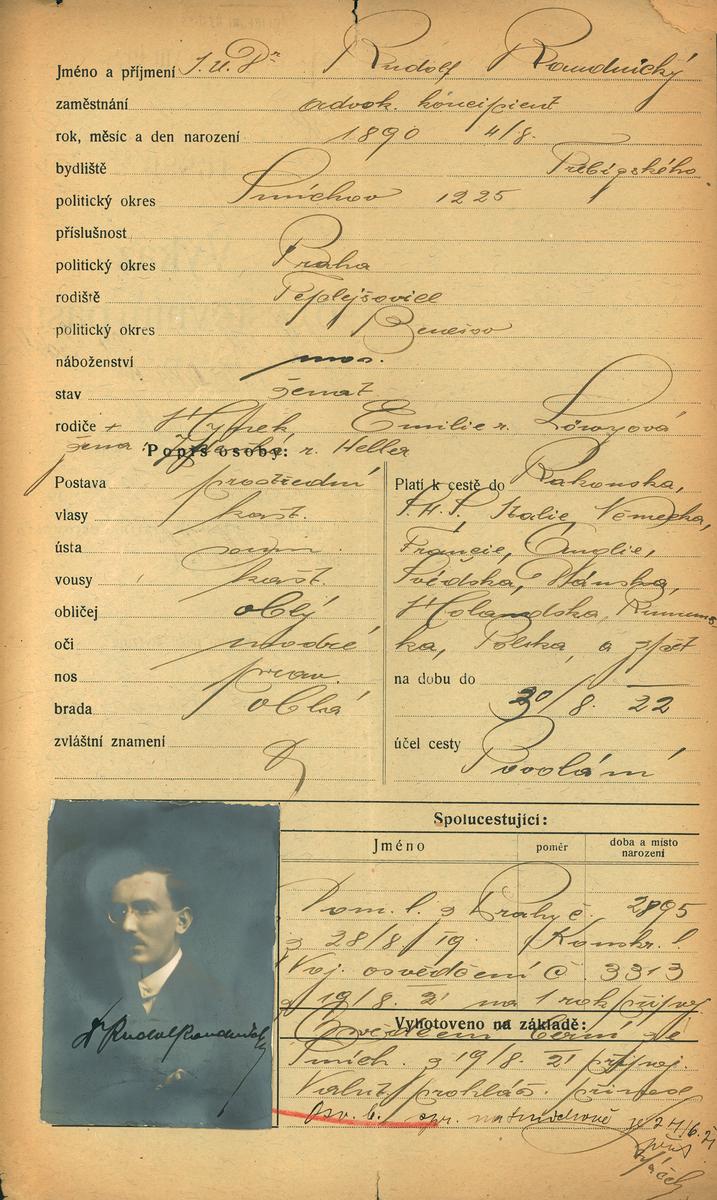 Jméno a příjmení J.U.Dr Rudolf Roudnický
zaměstnání advok. koncipient
rok, měsíc a den narození 1890 4/8.
bydliště Třebízského
politický okres Smíchov 1225
příslušnost
politický okres Praha
rodiště Teplejšovice
politický okres Benešov
náboženství mos.
stav ženat
rodiče + Hynek, Emilie r. Löwyová
žena: r. Heller
Popis osoby:
Postava prostřední
vlasy kašt.
ústa soum.
vousy kašt.
obličej oblý
oči modré
nos prav.
brada oblá
zvláštní znamení
Platí k cestě do Rakouska,
S.H.S., Italie, Německa,
Francie, Anglie,
Švédska, Dánska,
Holandska, Rumuns-
ka, Polska, a zpět
na dobu do
30/8. 22
účel cesty
Povolání
Spolucestující:
Jméno poměr doba a místo narození
Dom. l. z Prahy č. 2895
z 28/8. 19. Konskr. l
Voj. osvědčení č. 3313
z 19/8. 21 na 1 rok
Vyhotoveno na základě:
Osvědčení berní
Smích. z 19/8. 21
Valut. prohláš.
Osv. b. spr. na Smíchově z 24/6. 21
Dr Rudolf Roudnický